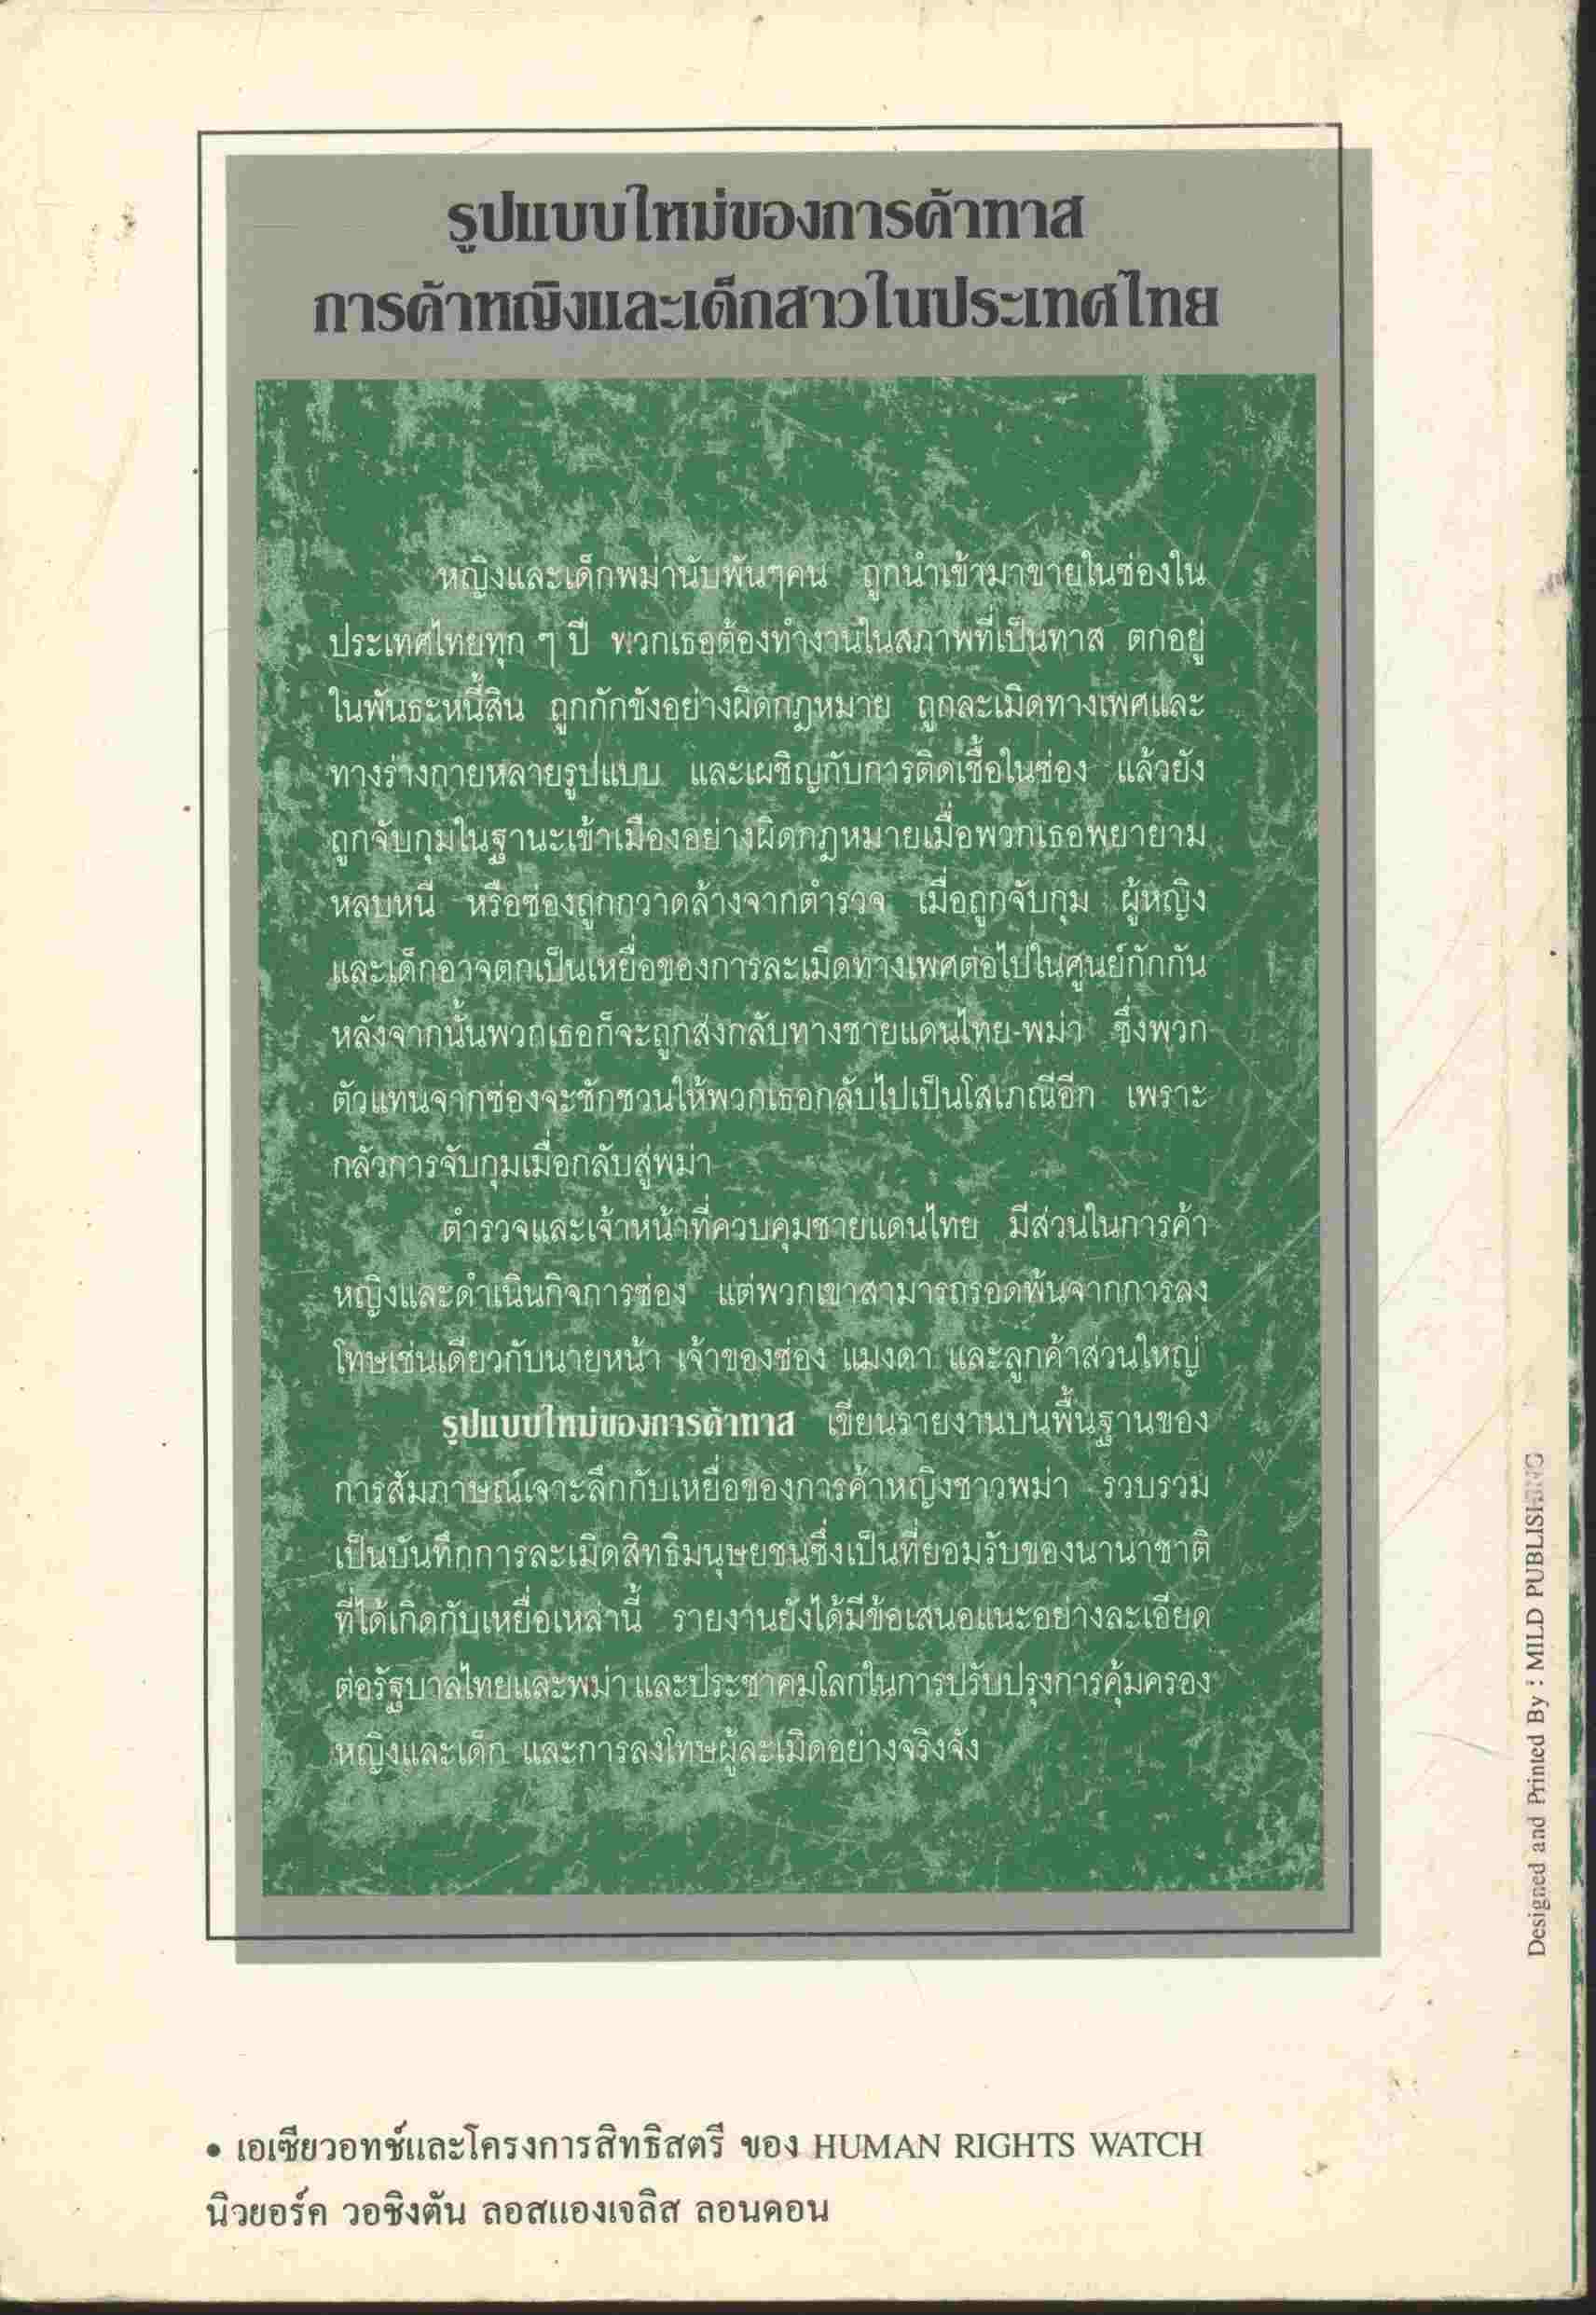 รูปแบบใหม่ของการค้าทาส
การค้าหญิงและเด็กสาวในประเทศไทย
หญิงและเด็กพม่านับพันๆคน ถูกนำเข้ามาขายในซ่องใน
ประเทศไทยทุก ๆ ปี พวกเธอต้องทำงานในสภาพที่เป็นทาส ตกอยู่
ในพันธะหนี้สิน ถูกกักขังอย่างผิดกฎหมาย ถูกละเมิดทางเพศและ
ทางร่างกายหลายรูปแบบ และเผชิญกับการติดเชื้อในซ่อง แล้วยัง
ถูกจับกุมในฐานะเข้าเมืองอย่างผิดกฎหมายเมื่อพวกเธอพยายาม
หลบหนี หรือซ่องถูกกวาดล้างจากตำรวจ เมื่อถูกจับกุม ผู้หญิง
และเด็กอาจตกเป็นเหยื่อของการละเมิดทางเพศต่อไปในศูนย์กักกัน
หลังจากนั้นพวกเธอก็จะถูกส่งกลับทางชายแดนไทย-พม่า ซึ่งพวก
ตัวแทนจากซ่องจะชักชวนให้พวกเธอกลับไปเป็นโสเภณีอีก เพราะ
กลัวการจับกุมเมื่อกลับสู่พม่า
ตำรวจและเจ้าหน้าที่ควบคุมชายแดนไทย มีส่วนในการค้า
หญิงและดำเนินกิจการซ่อง แต่พวกเขาสามารถรอดพ้นจากการลง
โทษเช่นเดียวกับนายหน้า เจ้าของซ่อง แมงดา และลูกค้าส่วนใหญ่
รูปแบบใหม่ของการค้าทาส เขียนรายงานบนพื้นฐานของ
การสัมภาษณ์เจาะลึกกับเหยื่อของการค้าหญิงชาวพม่า รวบรวม
เป็นบันทึกการละเมิดสิทธิมนุษยชนซึ่งเป็นที่ยอมรับของนานาชาติ
ที่ได้เกิดกับเหยื่อเหล่านี้ รายงานยังได้มีข้อเสนอแนะอย่างละเอียด
ต่อรัฐบาลไทยและพม่า และประชาคมโลกในการปรับปรุงการคุ้มครอง
หญิงและเด็ก และการลงโทษผู้ละเมิดอย่างจริงจัง
Designed and Printed By : MILD PUBLISHING
• เอเซียวอทช์และโครงการสิทธิสตรี ของ HUMAN RIGHTS WATCH
นิวยอร์ค วอชิงตัน ลอสแองเจลิส ลอนดอน